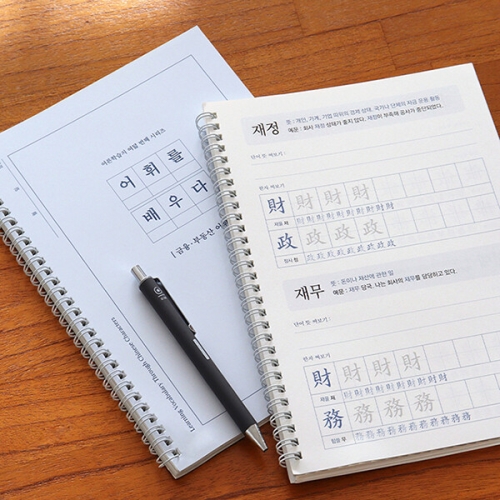 어른학습의 여덟 번째 시리즈
어휘를
배우다
| 금융·부동산 어
Learning Vocabulary Through Chinese Characters
재정
뜻 : 개인, 가계, 기업 따위의 경제 상태. 국가나 단체의 자금 운용 활동
예문 : 회사 재정 상태가 좋지 않다. 재정이 부족해 공사가 중단되었다.
단어 뜻 써보기 :
한자 써보기
財 財 財 財
재물 재 財 財 財 財 財 財 財
政 政 政 政
정사 정
재무
뜻 : 돈이나 재산에 관한 일
예문 : 재무 담당, 나는 회사의 재무를 담당하고 있다.
단어 뜻 써보기 :
한자 써보기
財 財 財 財
재물 재
務 務 務 務
힘쓸 무